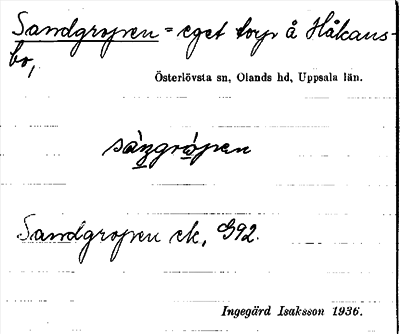 Sandgropen = eget torp å Håkans-
bo,
Österlövsta sn, Olands hd, Uppsala län.
sàngrópen
Sandgropen ek, G92.
Ingegärd Isaksson 1936.